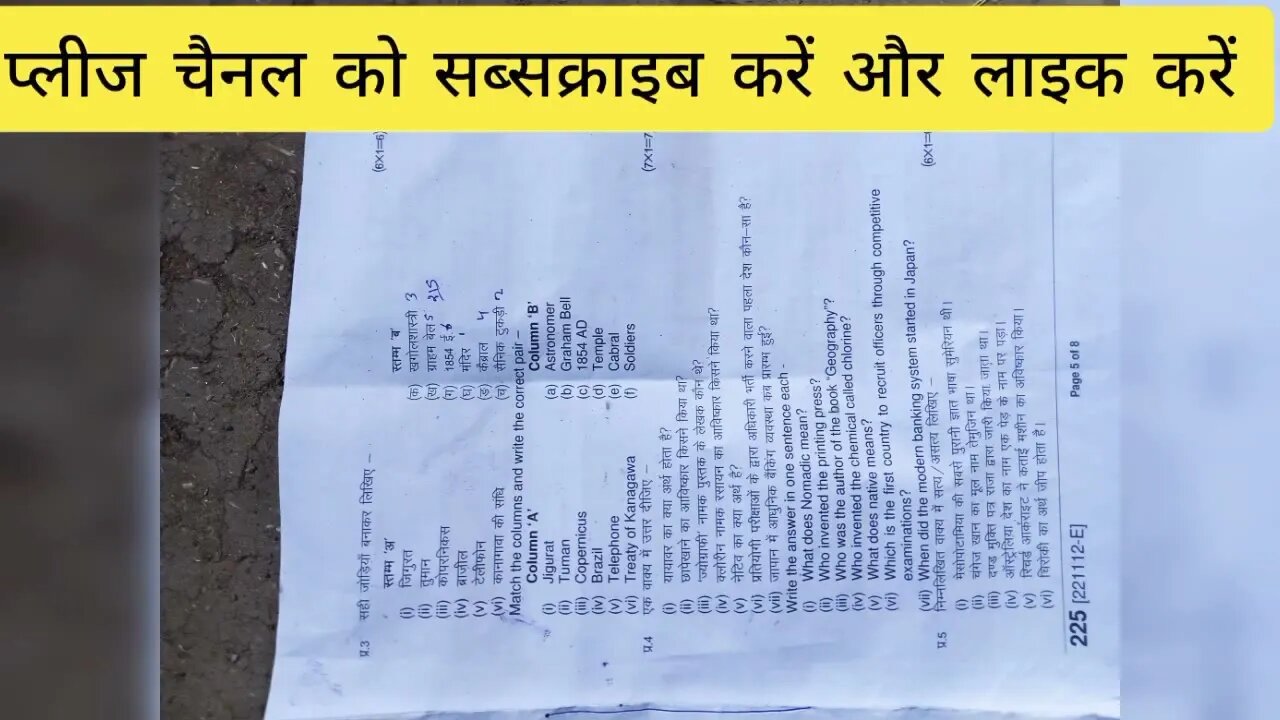 प्लीज चैनल को सब्सक्राइब करें और लाइक करें
प्र.3 सही जोड़ियाँ बनाकर लिखिए – (6X1=6)
स्तम्भ 'अ' स्तम्भ ब
(i) जिगुरत (क) खगोलशास्त्री 3
(ii) तुमान (ख) ग्राहम बेल 5
(iii) कोपरनिकस (ग) 1854 ई.6
(iv) ब्राजील (घ) मंदिर 1
(v) टेलीफोन (ङ) कैब्राल 4
(vi) कानागावा की संधि (च) सैनिक टुकड़ी 2
Match the columns and write the correct pair –
Column 'A' Column 'B'
(i) Jigurat (a) Astronomer
(ii) Tuman (b) Graham Bell
(iii) Copernicus (c) 1854 AD
(iv) Brazil (d) Temple
(v) Telephone (e) Cabral
(vi) Treaty of Kanagawa (f) Soldiers
प्र.4 एक वाक्य में उत्तर दीजिए – (7X1=7
(i) यायावर का क्या अर्थ होता है?
(ii) छापेखाने का आविष्कार किसने किया था?
(iii) ज्योग्राफी नामक पुस्तक के लेखक कौन थे?
(iv) क्लोरीन नामक रसायन का आविष्कार किसने किया था?
(v) नेटिव का क्या अर्थ है?
(vi) प्रतियोगी परीक्षाओं के द्वारा अधिकारी भर्ती करने वाला पहला देश कौन–सा है?
(vii) जापान में आधुनिक बैंकिंग व्यवस्था कब प्रारम्भ हुई?
Write the answer in one sentence each -
(i) What does Nomadic mean?
(ii) Who invented the printing press?
(iii) Who was the author of the book "Geography"?
(iv) Who invented the chemical called chlorine?
(v) What does native means?
(vi) Which is the first country to recruit officers through competitive
examinations?
(vii) When did the modern banking system started in Japan?
प्र.5 निम्नलिखित वाक्य में सत्य/असत्य लिखिए – (6X1=
(i) मेसोपोटामिया की सबसे पुरानी ज्ञात भाषा सुमेरियन थी।
(ii) चंगेज खान का मूल नाम तेमुजिन था।
(iii) दण्ड मुक्ति पत्र राजा द्वारा जारी किया जाता था।
(iv) ऑस्ट्रेलिया देश का नाम एक पेड़ के नाम पर पड़ा।
(v) रिचर्ड आर्कराइट ने कताई मशीन का अविष्कार किया।
(vi) चिरोकी का अर्थ जीप होता है।
225 [221112-E] Page 5 of 8